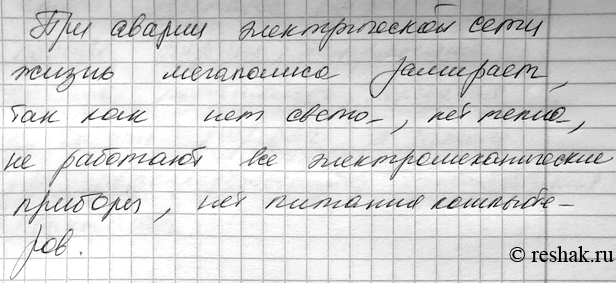 При аварии электрической сети
жизнь мегаполиса замирает,
так как нет света, нет тепла,
не работают все электромеханические
приборы, нет питания компьюте-
ров.
© reshak.ru